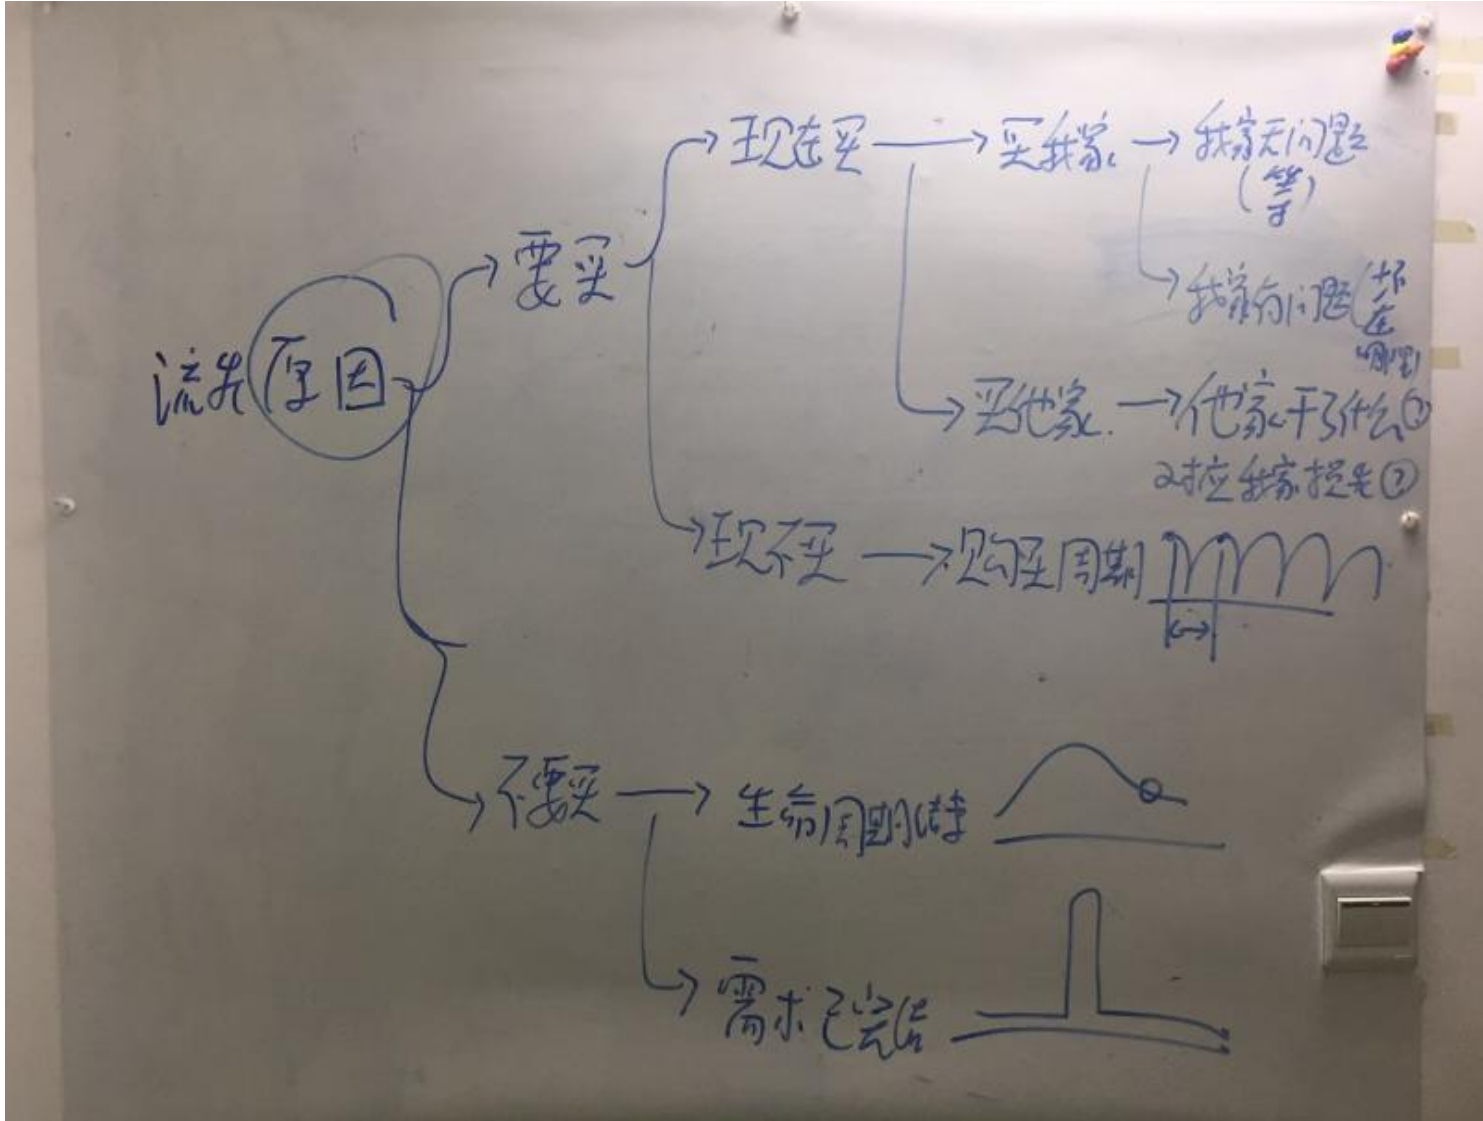 现在买
买我家
我家无问题
(等)
要买
我家有问题(坏在哪里)
流失原因
买他家
他家干了什么①
对应我家损失②
现不买
购买周期
不要买
生命周期结束
需求已完结